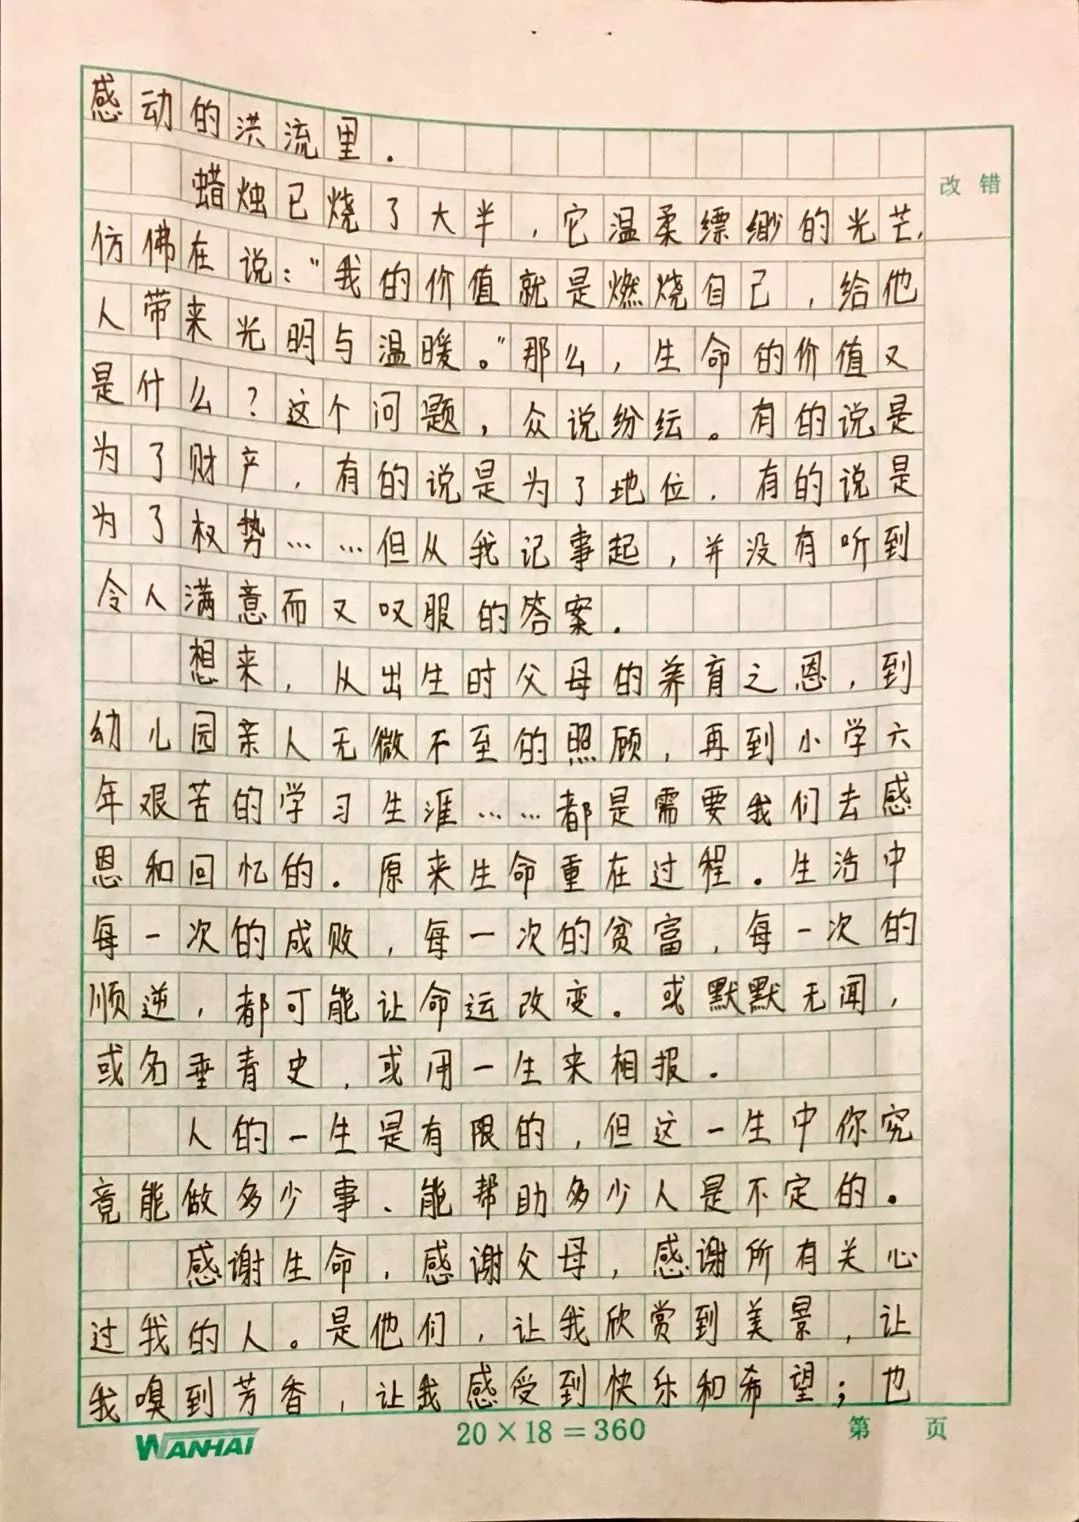 感动的洪流里.
蜡烛已烧了大半,它温柔缥缈的光芒,
仿佛在说:"我的价值就是燃烧自己,给他
人带来光明与温暖。"那么,生命的价值又
是什么?这个问题,众说纷纭。有的说是
为了财产,有的说是为了地位,有的说是
为了权势……但从我记事起,并没有听到
令人满意而又叹服的答案.
想来,从出生时父母的养育之恩,到
幼儿园亲人无微不至的照顾,再到小学六
年艰苦的学习生涯……都是需要我们去感
恩和回忆的.原来生命重在过程。生活中
每一次的成败,每一次的贫富,每一次的
顺逆,都可能让命运改变。或默默无闻,
或名垂青史,或用一生来相报.
人的一生是有限的,但这一生中你究
竟能做多少事、能帮助多少人是不定的。
感谢生命,感谢父母,感谢所有关心
过我的人。是他们,让我欣赏到美景,让
我嗅到芳香,让我感受到快乐和希望;也
改错
WANHAI
20×18=360
第 页